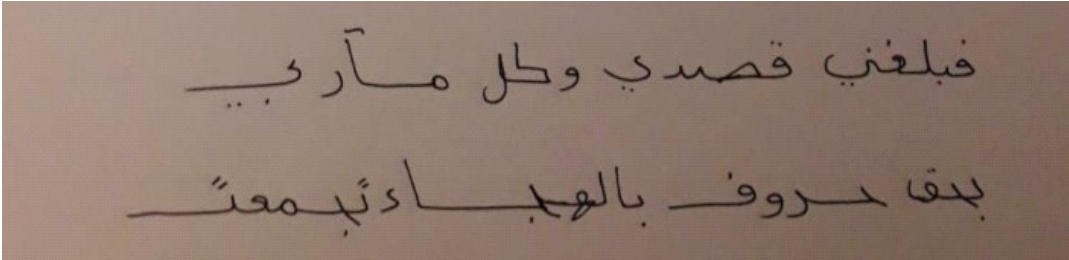 فبلغني قصدي وكل مآربي
بحق حروف بالهجاء تجمعت